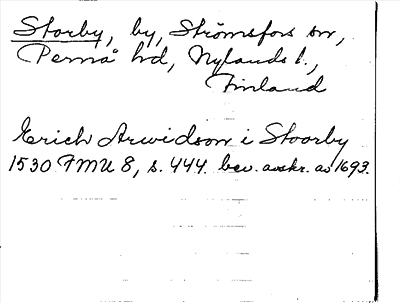 Storby, by, Strömsfors sn,
Pernå hd, Nylands l.,
Finland
Erich Arwidson i Stoorby
1530 FMU 8, s. 444. bev. avskr. av 1693.